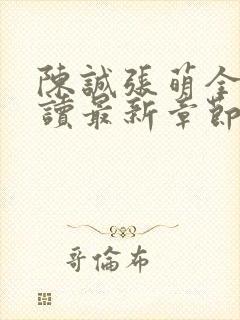 陳誠張萌全
讀最新章節
哥倫布